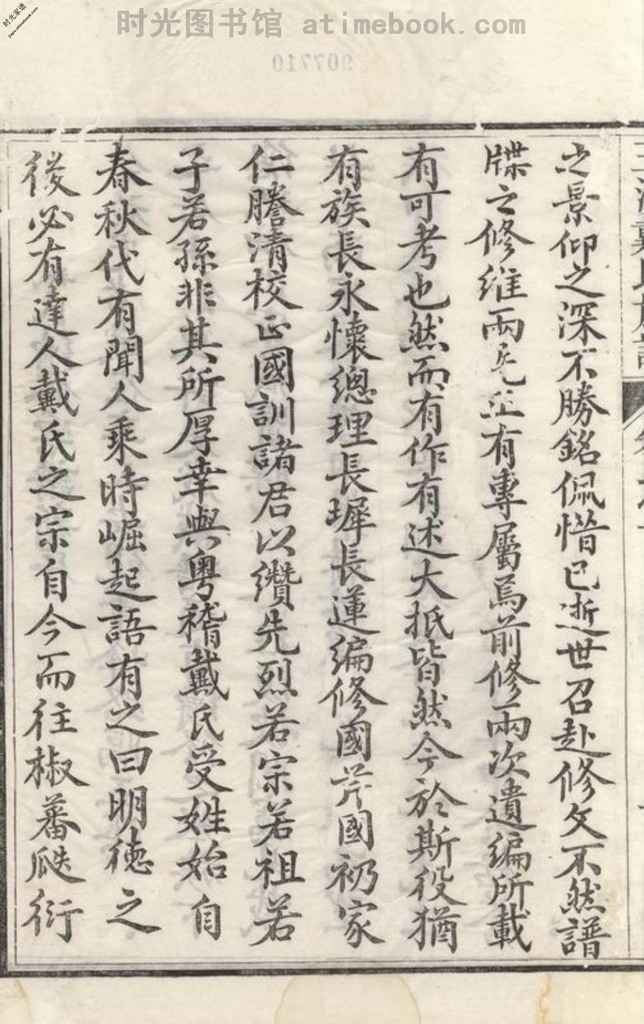 时光图书馆 atimebook.com
907710
之景仰之深不勝銘佩惜已逝世召赴修文不然譜
牒之修維兩先並有專屬焉前修兩次遺編所載
有可考也然而有作有述大抵皆然今於斯役猶
有族長永懷總理長墀長蓮編修國芹國礽家
仁謄清校正國訓諸君以纘先烈若宗若祖若
子若孫非其所厚幸與粵稽戴氏受姓始自
春秋代有聞人乘時崛起語有之曰明德之
後必有達人戴氏之宗自今而往椒蕃瓞衍